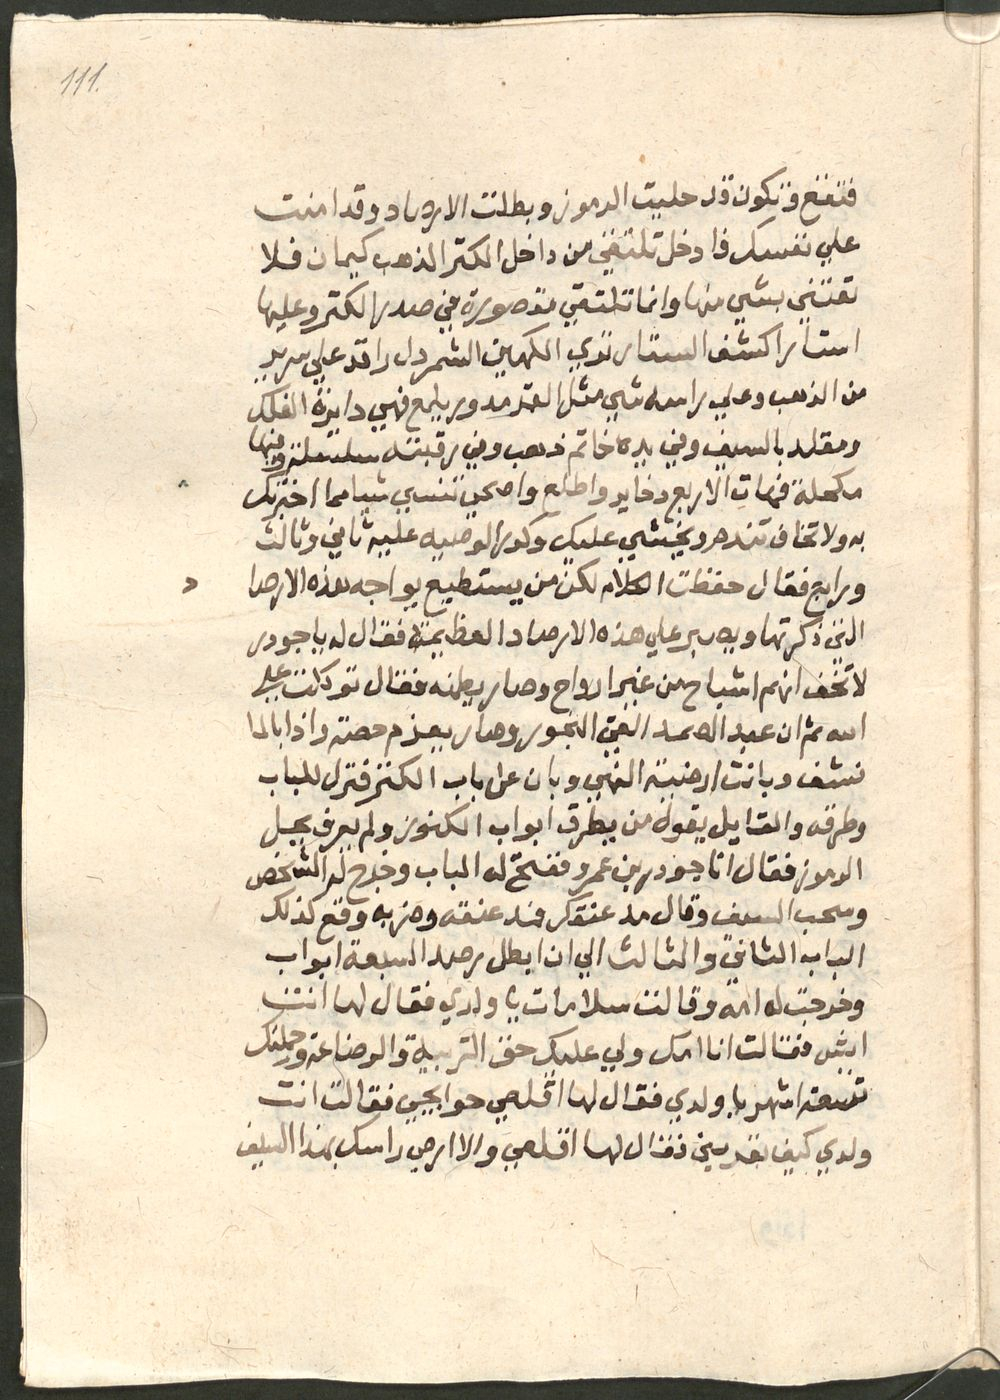 111.
فتقع وتكون قد حليت الرموز وبطلت الارصاد وقد امنت
علي نفسك فادخل تلتقي من داخل الكنز الذهب كيمان فلا
تعتني بشي منها وانما تلتقي مقصورة في صدر الكنز وعليها
استار اكشف الستار تري الكهين الشمردل راقد علي سرير
من الذهب وعلي راسه شي مثل القمر مدور يلمع فهي دايرة الفلك
ومقلد بالسيف وفي يده خاتم ذهب وفي رقبته سلسلة وفيها
مكحلة فهات الاربع دخاير واطلع واصحي تنسي شيا مما اخبرتك
به ولا تخاف تندم ويخشي عليك وكرر الوصيه عليه ثاني وثالث
ورابع فقال حفظت الكلام لكن من يستطيع يواجه هذه الارصا
د
التي ذكرتها ويصبر علي هذه الارصاد العظيمة فقال له يا جودر
لا تخف انهم اشباح من غير ارواح وصار يطمنه فقال توكلت علي
الله ثم ان عبد الصمد القي البخور وصار يعزم حصة واذا بالما
نشف وبانت ارضية النهر وبان عن باب الكنز فنزل للباب
وطرقه والقايل يقول من يطرق ابواب الكنوز ولم يعرف يحل
الرموز فقال انا جودر بن عمر ففتح له الباب وخرج له الشخص
وسحب السيف وقال مد عنقك فمد عنقه وضربه وقع كذلك
الباب الثاني والثالث الي ان ابطل رصد السبعة ابواب
وخرجت له امه وقالت سلامات يا ولدي فقال لها انت
ايش فقالت انا امك ولي عليك حق التربية والرضاعة وحملتك
تسعة اشهر يا ولدي فقال لها اقلعي حوايجي فقالت انت
ولدي كيف تعريني فقال لها اقلعي والا ارمي راسك بهذا السيف